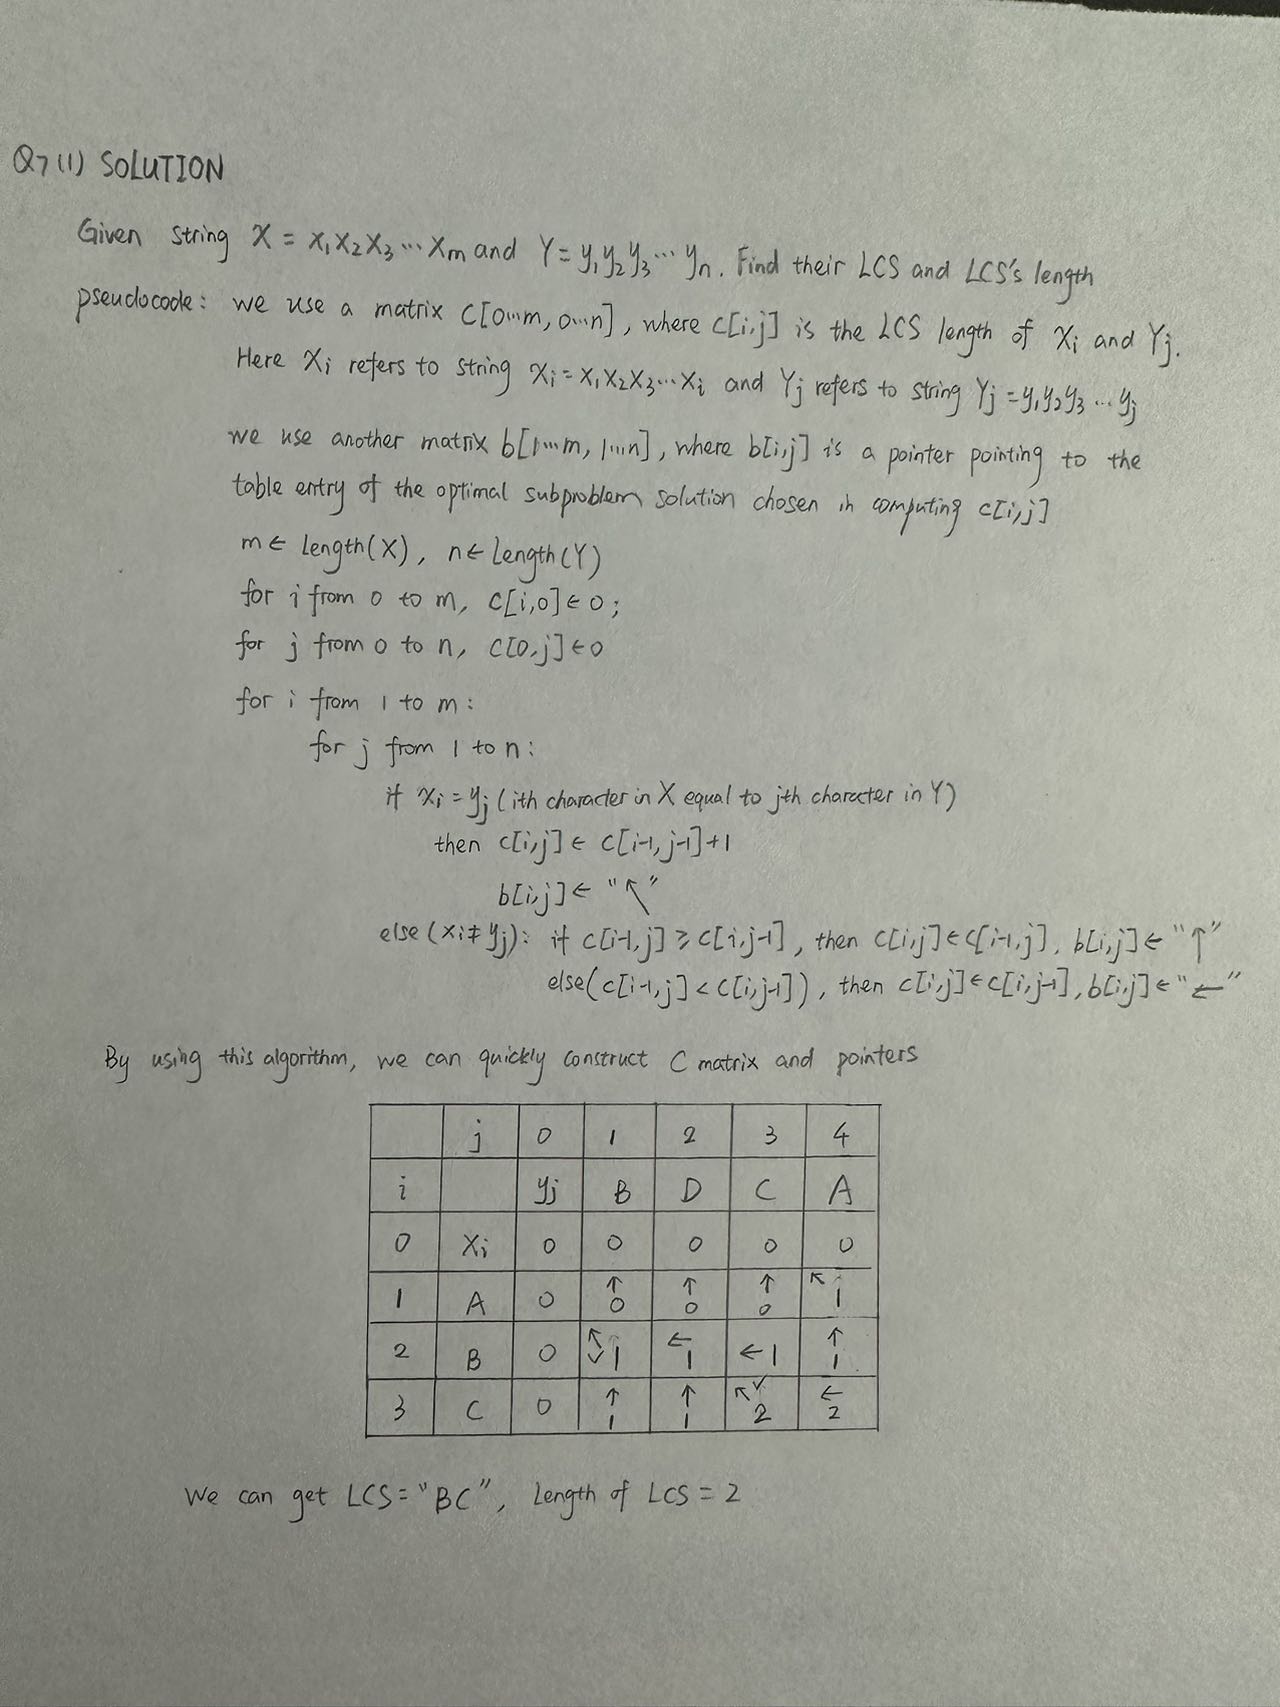 Q7 (1) SOLUTION
Given string X = x₁x₂x₃⋯xm and Y = y₁y₂y₃⋯yn. Find their LCS and LCS's length
pseudocode: we use a matrix C[0⋯m, 0⋯n], where c[i,j] is the LCS length of Xi and Yj.
Here Xi refers to string Xi = x₁x₂x₃⋯xi and Yj refers to string Yj = y₁y₂y₃⋯yj
we use another matrix b[1⋯m, 1⋯n], where b[i,j] is a pointer pointing to the
table entry of the optimal subproblem solution chosen in computing c[i,j]
m ← length(X), n ← length(Y)
for i from 0 to m, c[i,0] ← 0;
for j from 0 to n, c[0,j] ← 0
for i from 1 to m:
for j from 1 to n:
if xi = yj (ith character in X equal to jth character in Y)
then c[i,j] ← c[i-1,j-1]+1
b[i,j] ← "↖"
else (xi ≠ yj): if c[i-1,j] ≥ c[i,j-1], then c[i,j] ← c[i-1,j], b[i,j] ← "↑"
else (c[i-1,j] < c[i,j-1]), then c[i,j] ← c[i,j-1], b[i,j] ← "←"
By using this algorithm, we can quickly construct C matrix and pointers
j 0 1 2 3 4
i yj B D C A
0 Xi 0 0 0 0 0
1 A 0 ↑0 ↑0 ↑0 ↖1
2 B 0 ↖✓1 ←1 ←1 ↑1
3 C 0 ↑1 ↑1 ↖✓2 ←2
We can get LCS = "BC", Length of LCS = 2